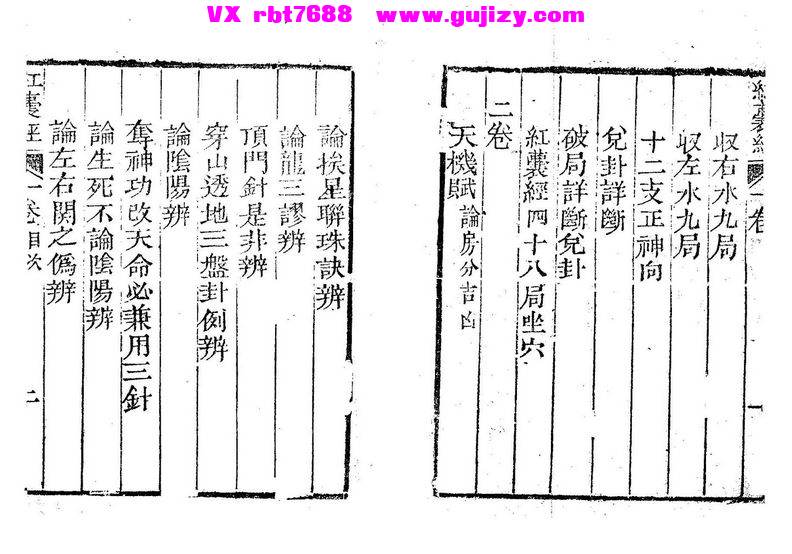 VX rbt7688 www.gujizy.com
紅囊經 一卷
收右水九局
收左水九局
十二支正神向
兌卦詳斷
破局詳斷兌卦
紅囊經四十八局坐穴
二卷
天機賦 論房分吉凶
一
論挨星聯珠訣辨
論龍三謬辨
頂門針是非辨
穿山透地三盤卦例辨
論陰陽辨
奪神功改天命必兼用三針
論生死不論陰陽辨
論左右関之偽辨
紅囊經 一卷目次
二